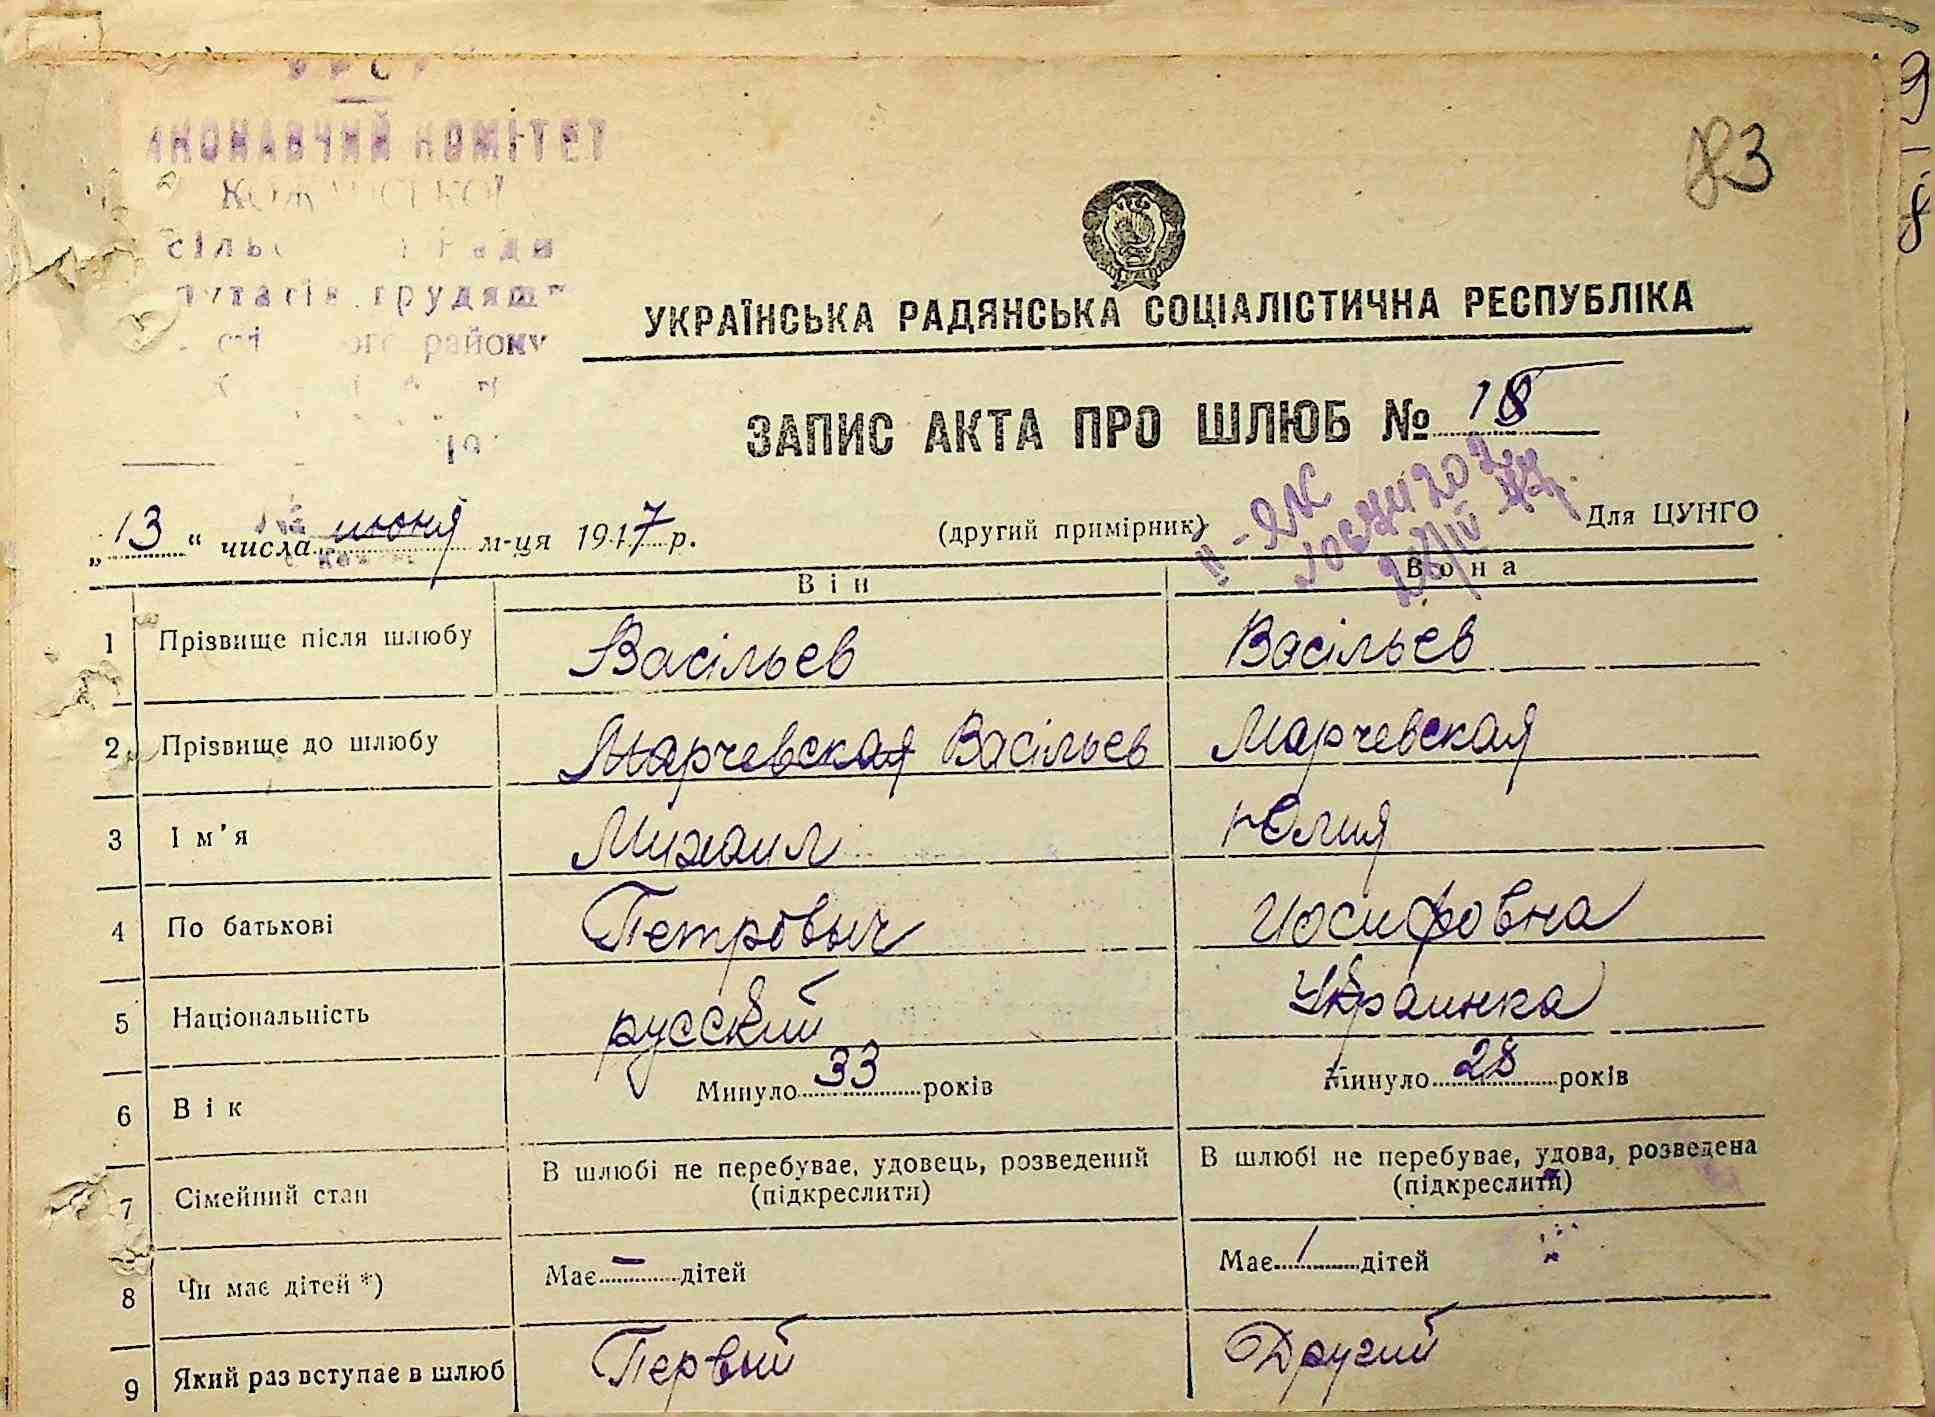 83
9
8
КОМІТЕТ
району
УКРАЇНСЬКА РАДЯНСЬКА СОЦІАЛІСТИЧНА РЕСПУБЛІКА
ЗАПИС АКТА ПРО ШЛЮБ № 18
„13“ числа июня м-ця 1947 р. (другий примірник) Для ЦУНГО
Він Вона
1 Прізвище після шлюбу Васільев Васільев
2 Прізвище до шлюбу Марчевская Васільев Марчевская
3 Ім'я Михаил Юлия
4 По батькові Петровыч Иосифовна
5 Національність русский Украинка
6 Вік Минуло 33 років Минуло 28 років
7 Сімейний стан В шлюбі не перебуває, удовець, розведений (підкреслити) В шлюбі не перебуває, удова, розведена (підкреслити)
8 Чи має дітей *) Має - дітей Має 1 дітей
9 Який раз вступає в шлюб Первый Другий